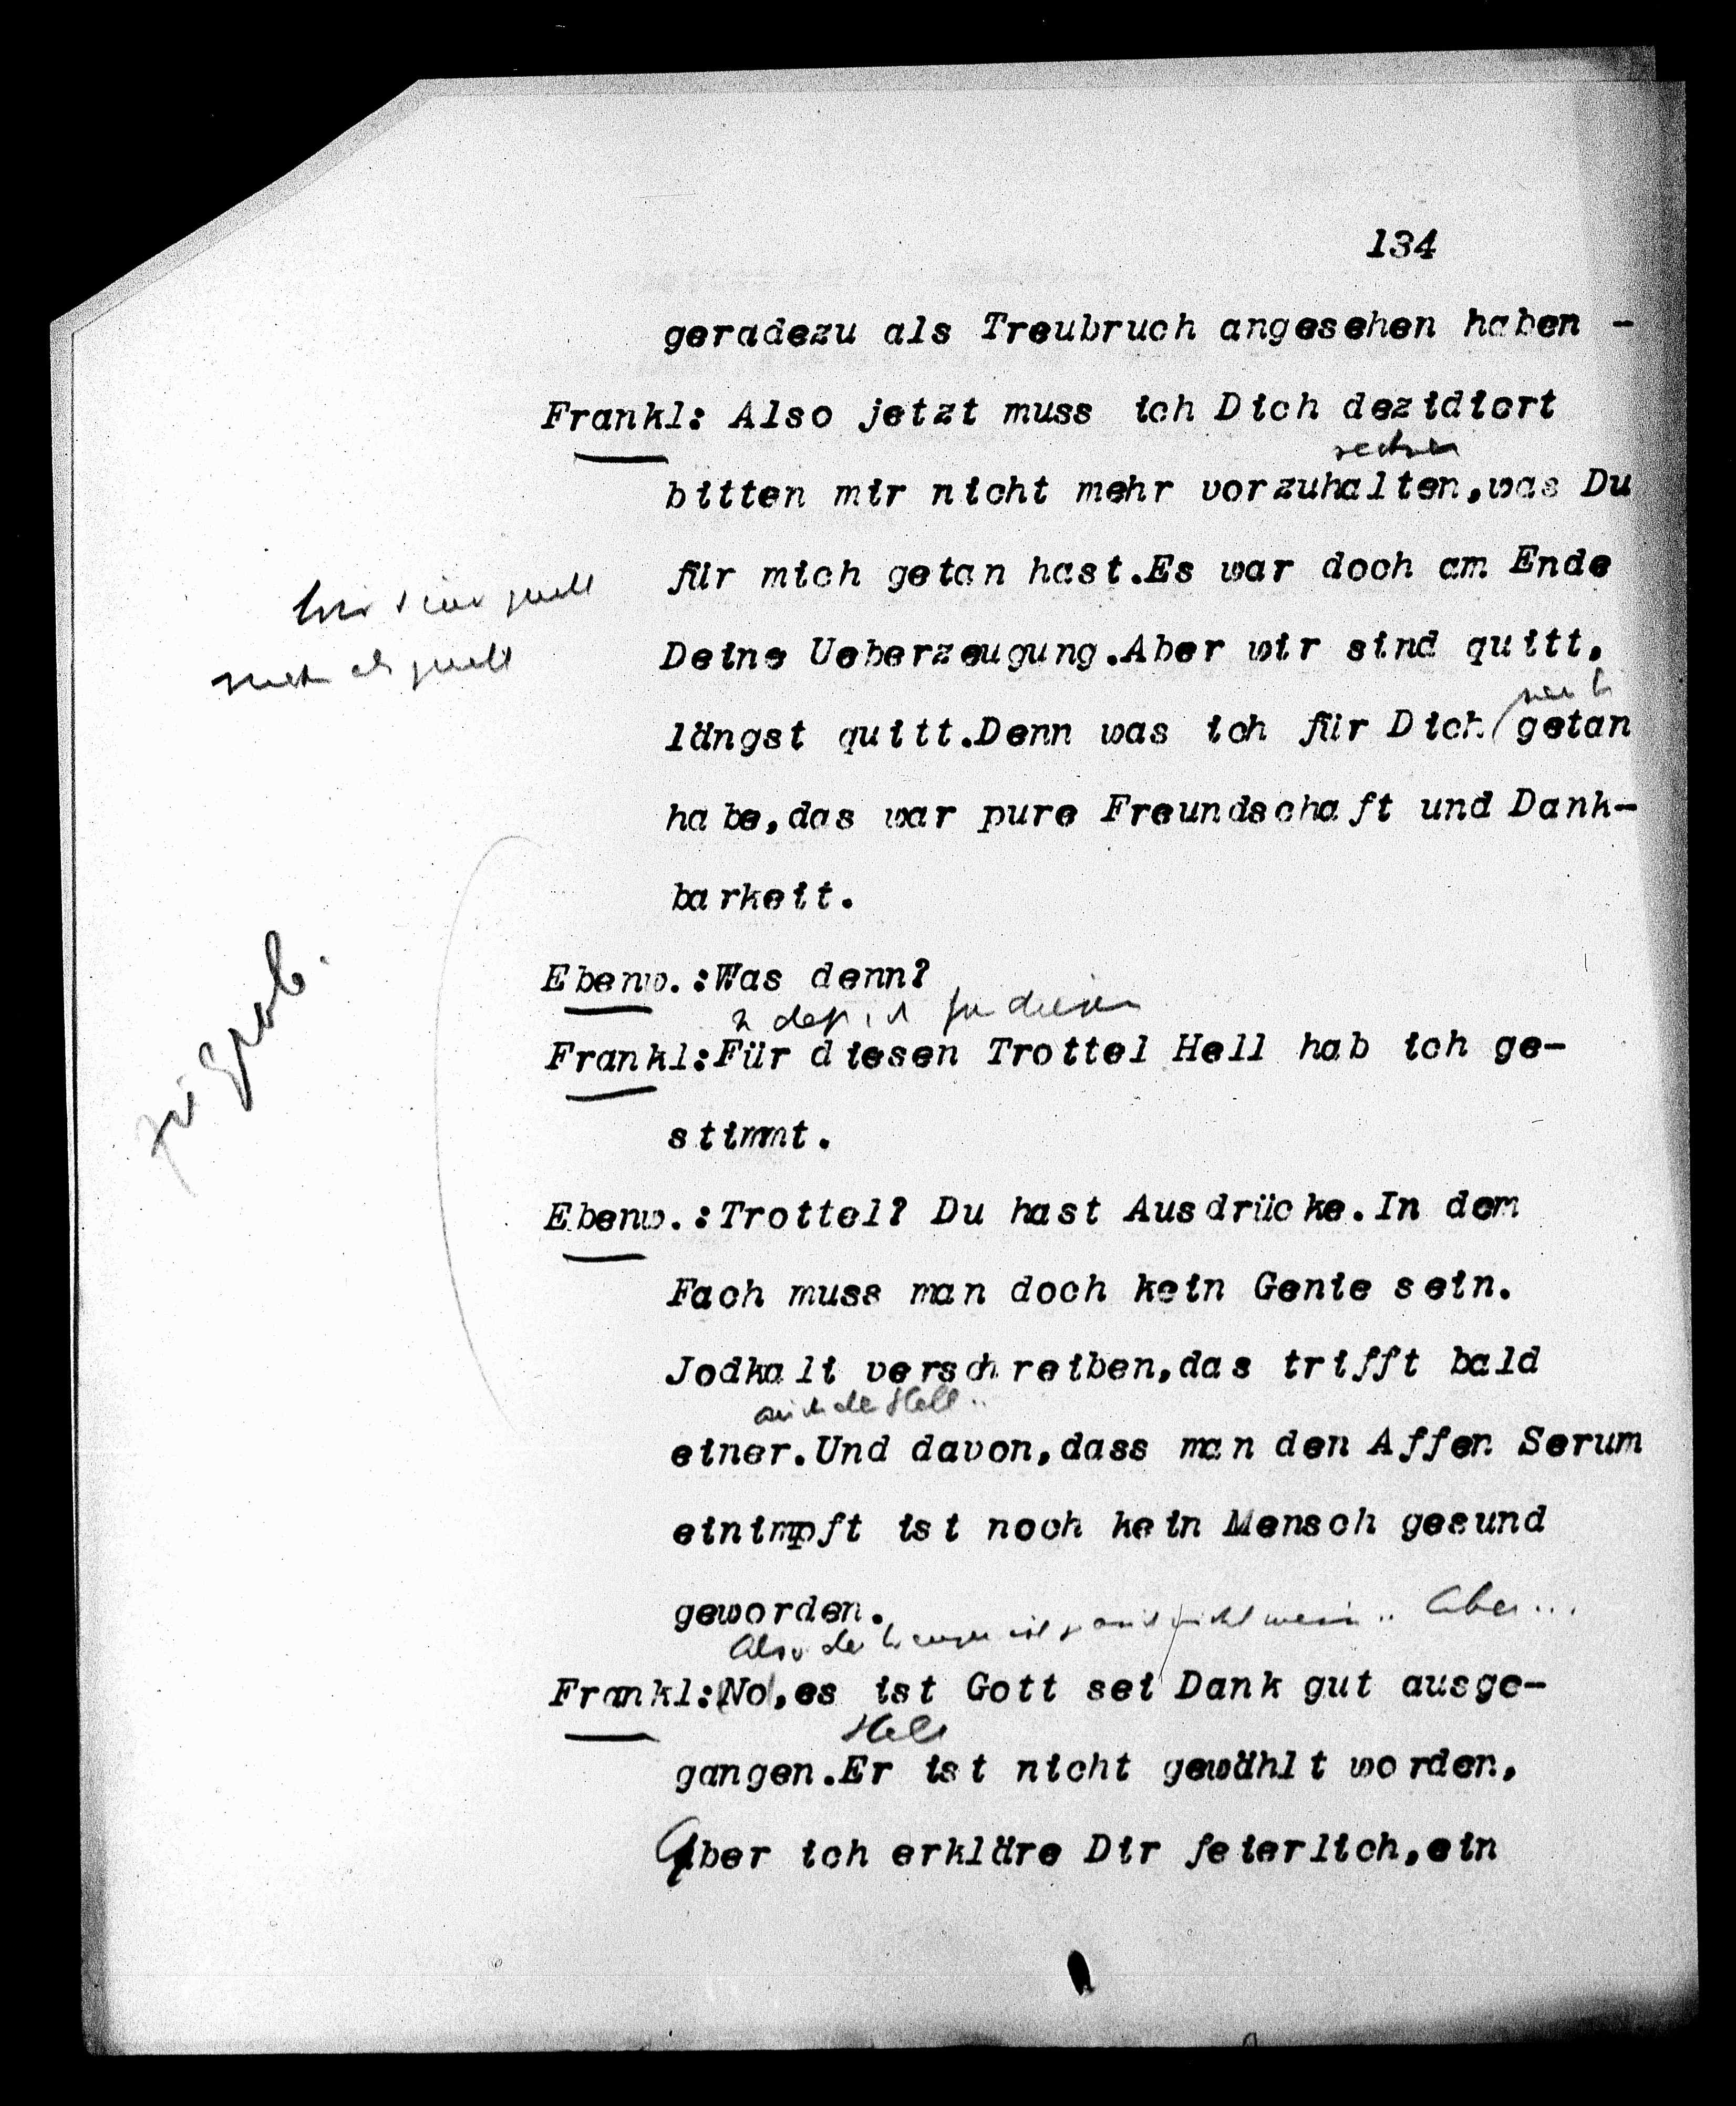 134
geradezu als Treubruch angesehen haben -
Frankl: Also jetzt muss ich Dich dezidiert
bitten mir nicht mehr vorzuhalten,was Du
für mich getan hast.Es war doch am Ende
Deine Ueberzeugung.Aber wir sind quitt,
längst quitt.Denn was ich für Dich getan
habe,das war pure Freundschaft und Dank-
barkeit.
zu grob.
Ebenw.:Was denn?
Frankl:Für diesen Trottel Hell hab ich ge-
stimmt.
Ebenw.:Trottel? Du hast Ausdrücke.In dem
Fach muss man doch kein Genie sein.
Jodkali verschreiben,das trifft bald
Hell ..
einer.Und davon,dass man den Affen Serum
einimpft ist noch kein Mensch gesund
geworden.
Also der .. Aber ...
Frankl:No,es ist Gott sei Dank gut ausge-
Hell
gangen.Er ist nicht gewählt worden,
Aber ich erkläre Dir feierlich,ein